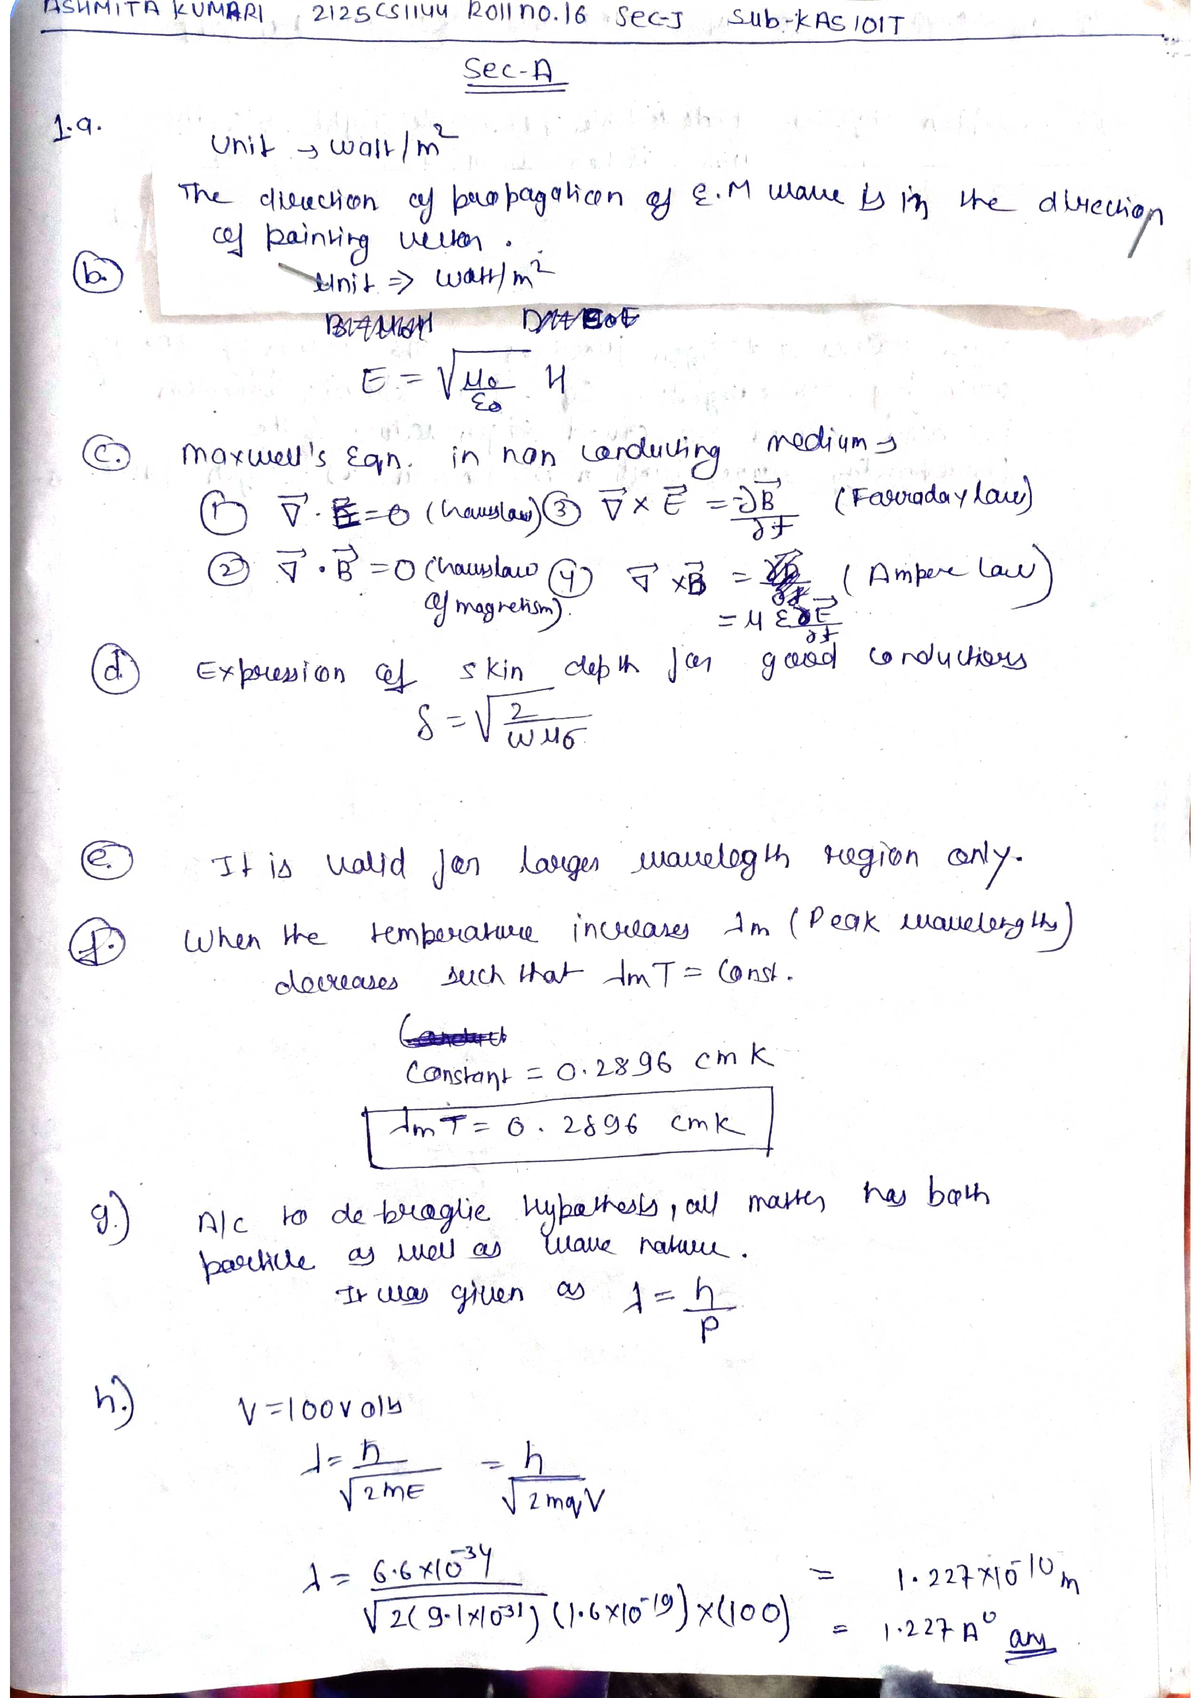 ASHMITA KUMARI 2125CS1144 Roll no.16 Sec-J Sub-KAS101T
Sec-A
1.a.
Unit → watt/m²
The direction of propagation of E.M wave is in the direction
of painting vector.
b.
Unit ⇒ watt/m²
E = √(μ₀/ε₀) H
c. maxwell's Eqn. in non conducting medium →
① ∇⃗ · E⃗ = 0 (hauslaw) ③ ∇⃗ × E⃗ = -∂B⃗/∂t (Farraday law)
② ∇⃗ · B⃗ = 0 (hauslaw of magnetism). ④ ∇⃗ × B⃗ = (Ampere law)
= μ ε ∂E⃗/∂t
d. Expression of skin depth for good conductors
δ = √(2/ωμσ)
e. It is valid for larger wavelegth region only.
f. When the temperature increases λm (Peak wavelengths)
decreases such that λmT = Const.
Constant = 0.2896 cm K
λmT = 0.2896 cmk
g.) A/c to de-broglie Hypothesis, all matter has both
particle as well as wave nature.
It was given as λ = h/P
h.) V = 100 volts
λ = h/√(2mE) = h/√(2mqV)
λ = 6.6×10⁻³⁴/√(2(9.1×10⁻³¹)(1.6×10⁻¹⁹)×(100)) = 1.227×10⁻¹⁰ m
= 1.227 A⁰ ans